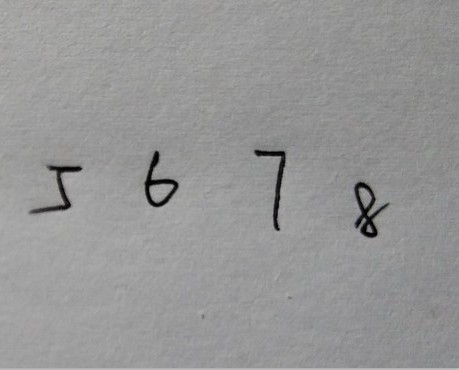 5 6 7 8